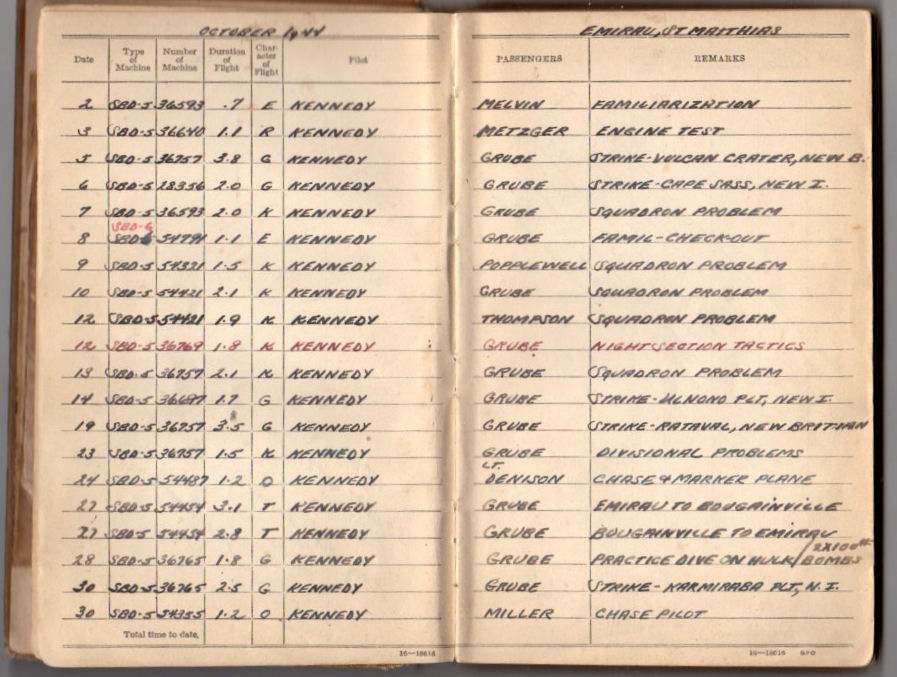 OCTOBER 1944 EMIRAU, ST MATTHIAS
Date Type of Machine Number of Machine Duration of Flight Character of Flight Pilot PASSENGERS REMARKS
2 SBD-5 36593 .7 E KENNEDY MELVIN FAMILIARIZATION
3 SBD-5 36640 1.1 R KENNEDY METZGER ENGINE TEST
5 SBD-5 36757 3.8 G KENNEDY GRUBE STRIKE-VULCAN CRATER, NEW B.
6 SBD-5 28356 2.0 G KENNEDY GRUBE STRIKE-CAPE SASS, NEW I.
7 SBD-5 36593 2.0 K KENNEDY GRUBE SQUADRON PROBLEM
SBD-6
8 54791 1.1 E KENNEDY GRUBE FAMIL-CHECK-OUT
9 SBD-5 54321 1.5 K KENNEDY POPPLEWELL SQUADRON PROBLEM
10 SBD-5 54421 2.1 K KENNEDY GRUBE SQUADRON PROBLEM
12 SBD-5 54421 1.9 K KENNEDY THOMPSON SQUADRON PROBLEM
12 SBD-5 36769 1.8 K KENNEDY GRUBE NIGHT SECTION TACTICS
13 SBD-5 36757 2.1 K KENNEDY GRUBE SQUADRON PROBLEM
14 SBD-5 36697 1.7 G KENNEDY GRUBE STRIKE-ULNONO PLT, NEW I.
19 SBD-5 36757 3.5 G KENNEDY GRUBE STRIKE-RATAVAL, NEW BRITIAN
23 SBD-5 36757 1.5 K KENNEDY GRUBE DIVISIONAL PROBLEMS
24 SBD-5 54487 1.2 O KENNEDY LT. DENISON CHASE & MARKER PLANE
27 SBD-5 54454 3.1 T KENNEDY GRUBE EMIRAU TO BOUGAINVILLE
27 SBD-5 54454 2.8 T KENNEDY GRUBE BOUGAINVILLE TO EMIRAU
28 SBD-5 36765 1.8 G KENNEDY GRUBE PRACTICE DIVE ON HULK/2X100# BOMBS
30 SBD-5 36765 2.5 G KENNEDY GRUBE STRIKE-KARMIRABA PLT, N.I.
30 SBD-5 54355 1.2 O KENNEDY MILLER CHASE PILOT
Total time to date,
16—18616 16—18616 GPO